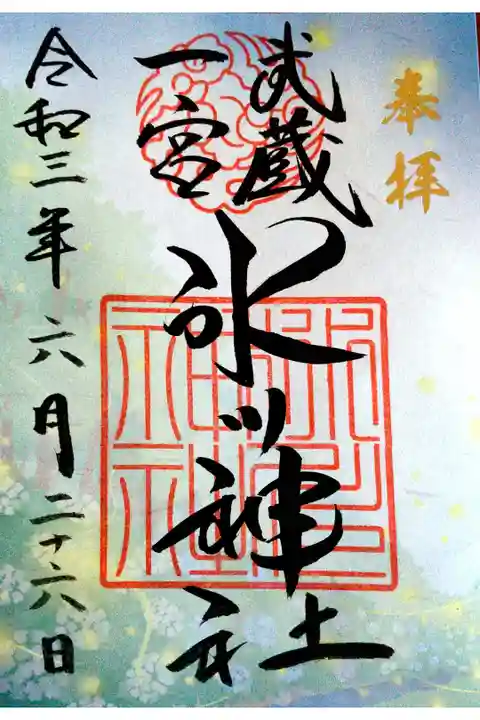 奉拝
武蔵
一宮
氷川神社
令和三年六月二十六日